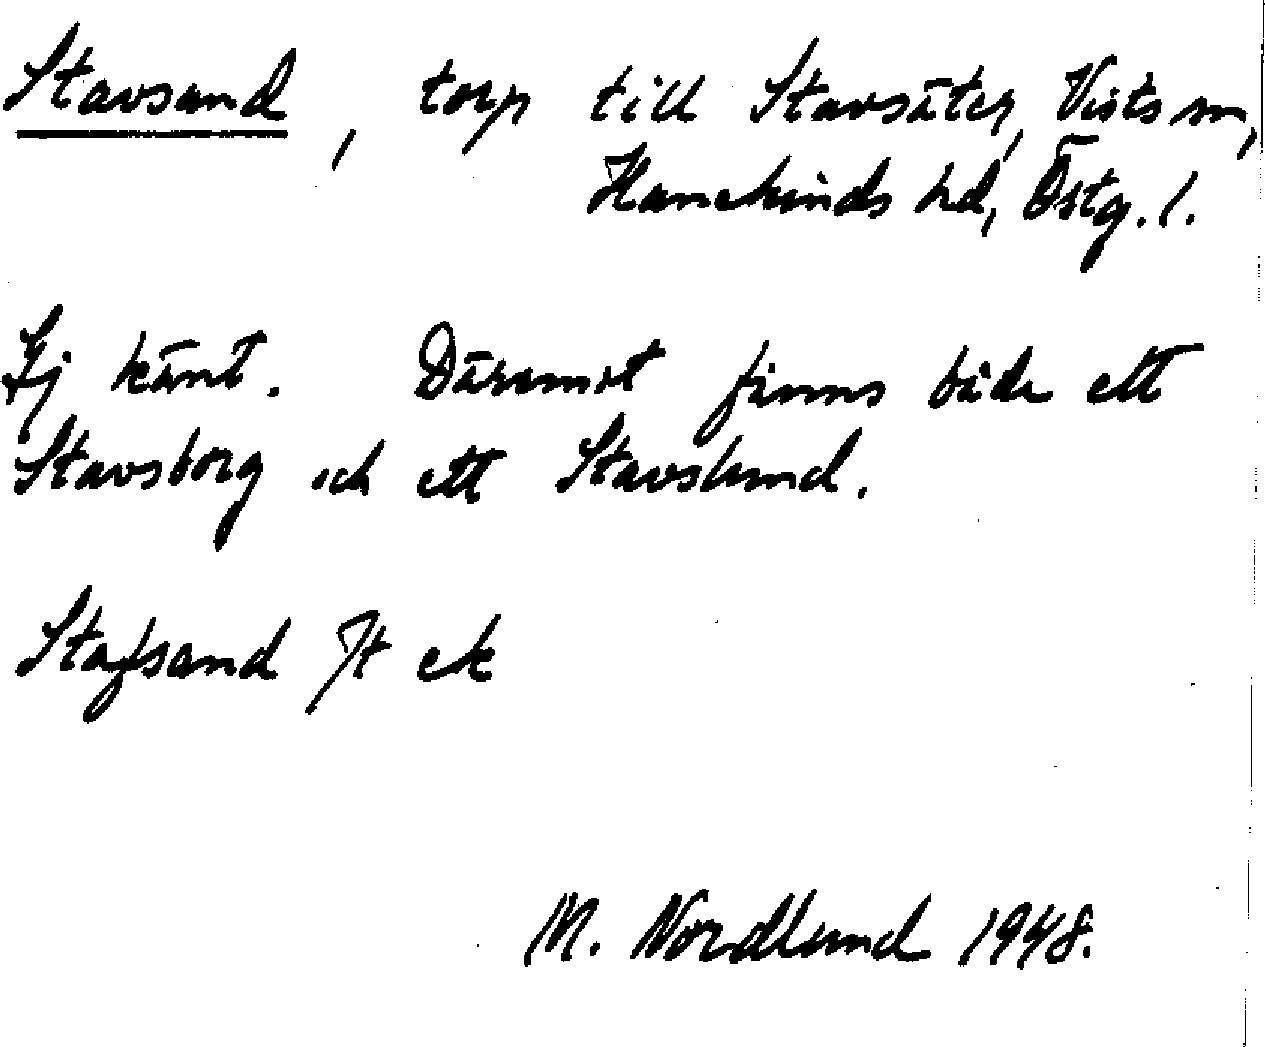 Stavsand, torp till Stavsäter, Vists sn,
Hanekinds hd, Östg. l.
Ej känt. Däremot finns både ett
Stavsborg och ett Stavslund.
Stafsand Jt ek
M. Nordlund 1948.